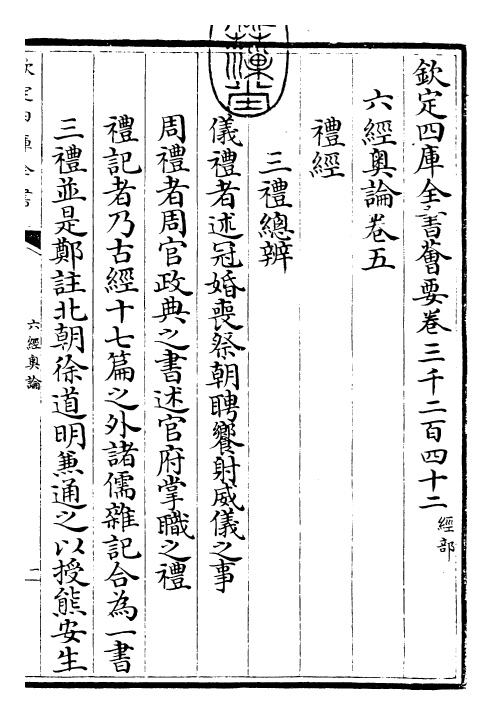 欽定四庫全書薈要卷三千二百四十二 經部
六經奧論卷五
禮經
三禮總辨
儀禮者述冠婚喪祭朝聘饗射威儀之事
周禮者周官政典之書述官府掌職之禮
禮記者乃古經十七篇之外諸儒雜記合為一書
三禮並是鄭註北朝徐道明兼通之以授熊安生
欽定四庫全書
六經奧論